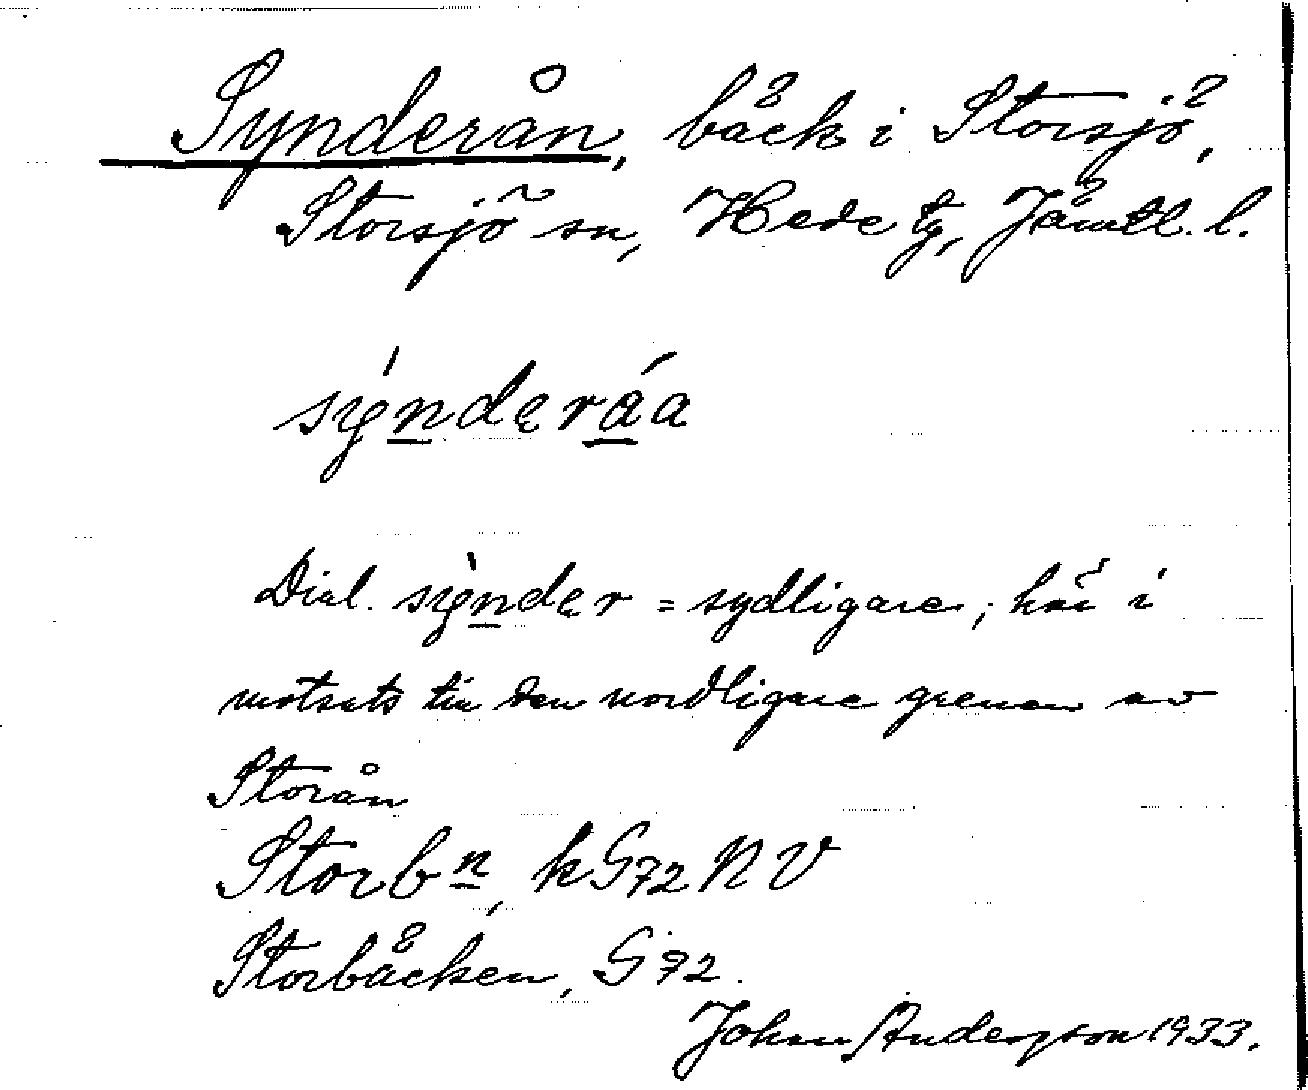 Synderån, bäck i Storsjö,
Storsjö sn, Hede tg, Jämtl. l.
sýnderáa
Dial. sỳnder = sydligare, här i
motsats till den nordligare grenen av
Storån
Storbn, kG72NV
Storbäcken, G72.
Johan Anderson 1933.